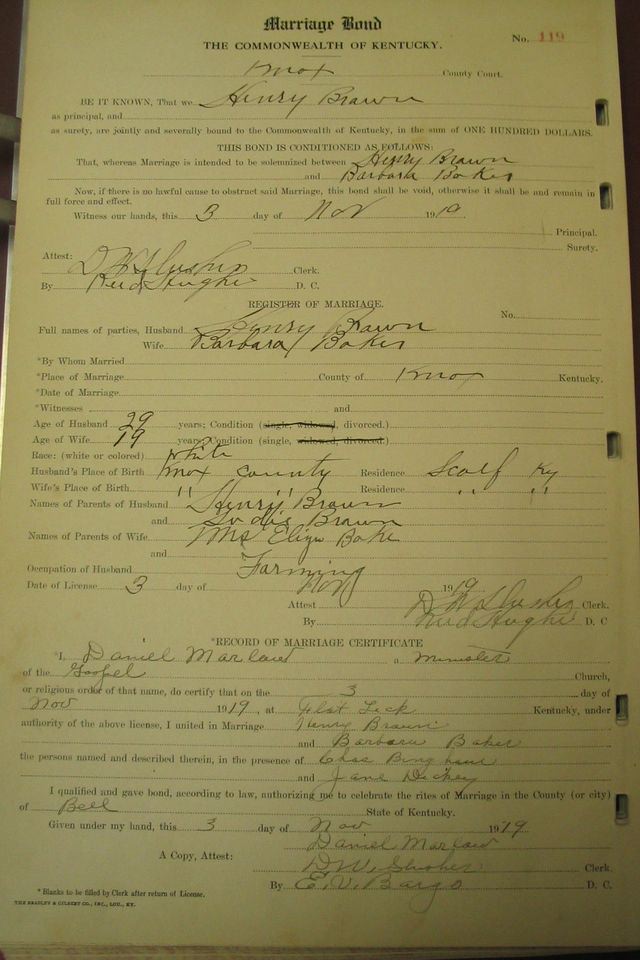 Marriage Bond
THE COMMONWEALTH OF KENTUCKY.
No. 119
Knox County Court.
BE IT KNOWN, That we Henry Brown
as principal, and
as surety, are jointly and severally bound to the Commonwealth of Kentucky, in the sum of ONE HUNDRED DOLLARS.
THIS BOND IS CONDITIONED AS FOLLOWS:
That, whereas Marriage is intended to be solemnized between Henry Brown
and Barbara Baker
Now, if there is no lawful cause to obstruct said Marriage, this bond shall be void, otherwise it shall be and remain in
full force and effect.
Witness our hands, this 3 day of Nov 1919.
Principal.
Surety.
Attest:
D W Slusher Clerk.
By Hughs D. C.
REGISTER OF MARRIAGE.
No.
Full names of parties, Husband Henry Brown
Wife Barbara Baker
*By Whom Married
*Place of Marriage County of Knox Kentucky.
*Date of Marriage
*Witnesses and
Age of Husband 29 years; Condition (single, widowed, divorced.)
Age of Wife 19 years; Condition (single, widowed, divorced.)
Race: (white or colored) White
Husband's Place of Birth Knox County Residence Scalf Ky
Wife's Place of Birth " " Residence " "
Names of Parents of Husband Henry Brown
and Brown
Names of Parents of Wife Mrs Eliza Bake
and
Occupation of Husband Farming
Date of License 3 day of Nov 1919
Attest D W Slusher Clerk.
By Hughs D. C
*RECORD OF MARRIAGE CERTIFICATE
*I, Daniel Marlow a Minister
of the Gospel Church,
or religious order of that name, do certify that on the 3 day of
Nov 1919, at Flat Lick Kentucky, under
authority of the above license, I united in Marriage Henry Brown
and Barbara Baker
the persons named and described therein, in the presence of Chas Bingham
and Jane Dickey
I qualified and gave bond, according to law, authorizing me to celebrate the rites of Marriage in the County (or city)
of Bell State of Kentucky.
Given under my hand, this 3 day of Nov 1919
Daniel Marlow
A Copy, Attest: D. W. Slusher Clerk.
By E. V. Bargo D. C.
*Blanks to be filled by Clerk after return of License.
THE BRADLEY & GILBERT CO., INC., LOU., KY.